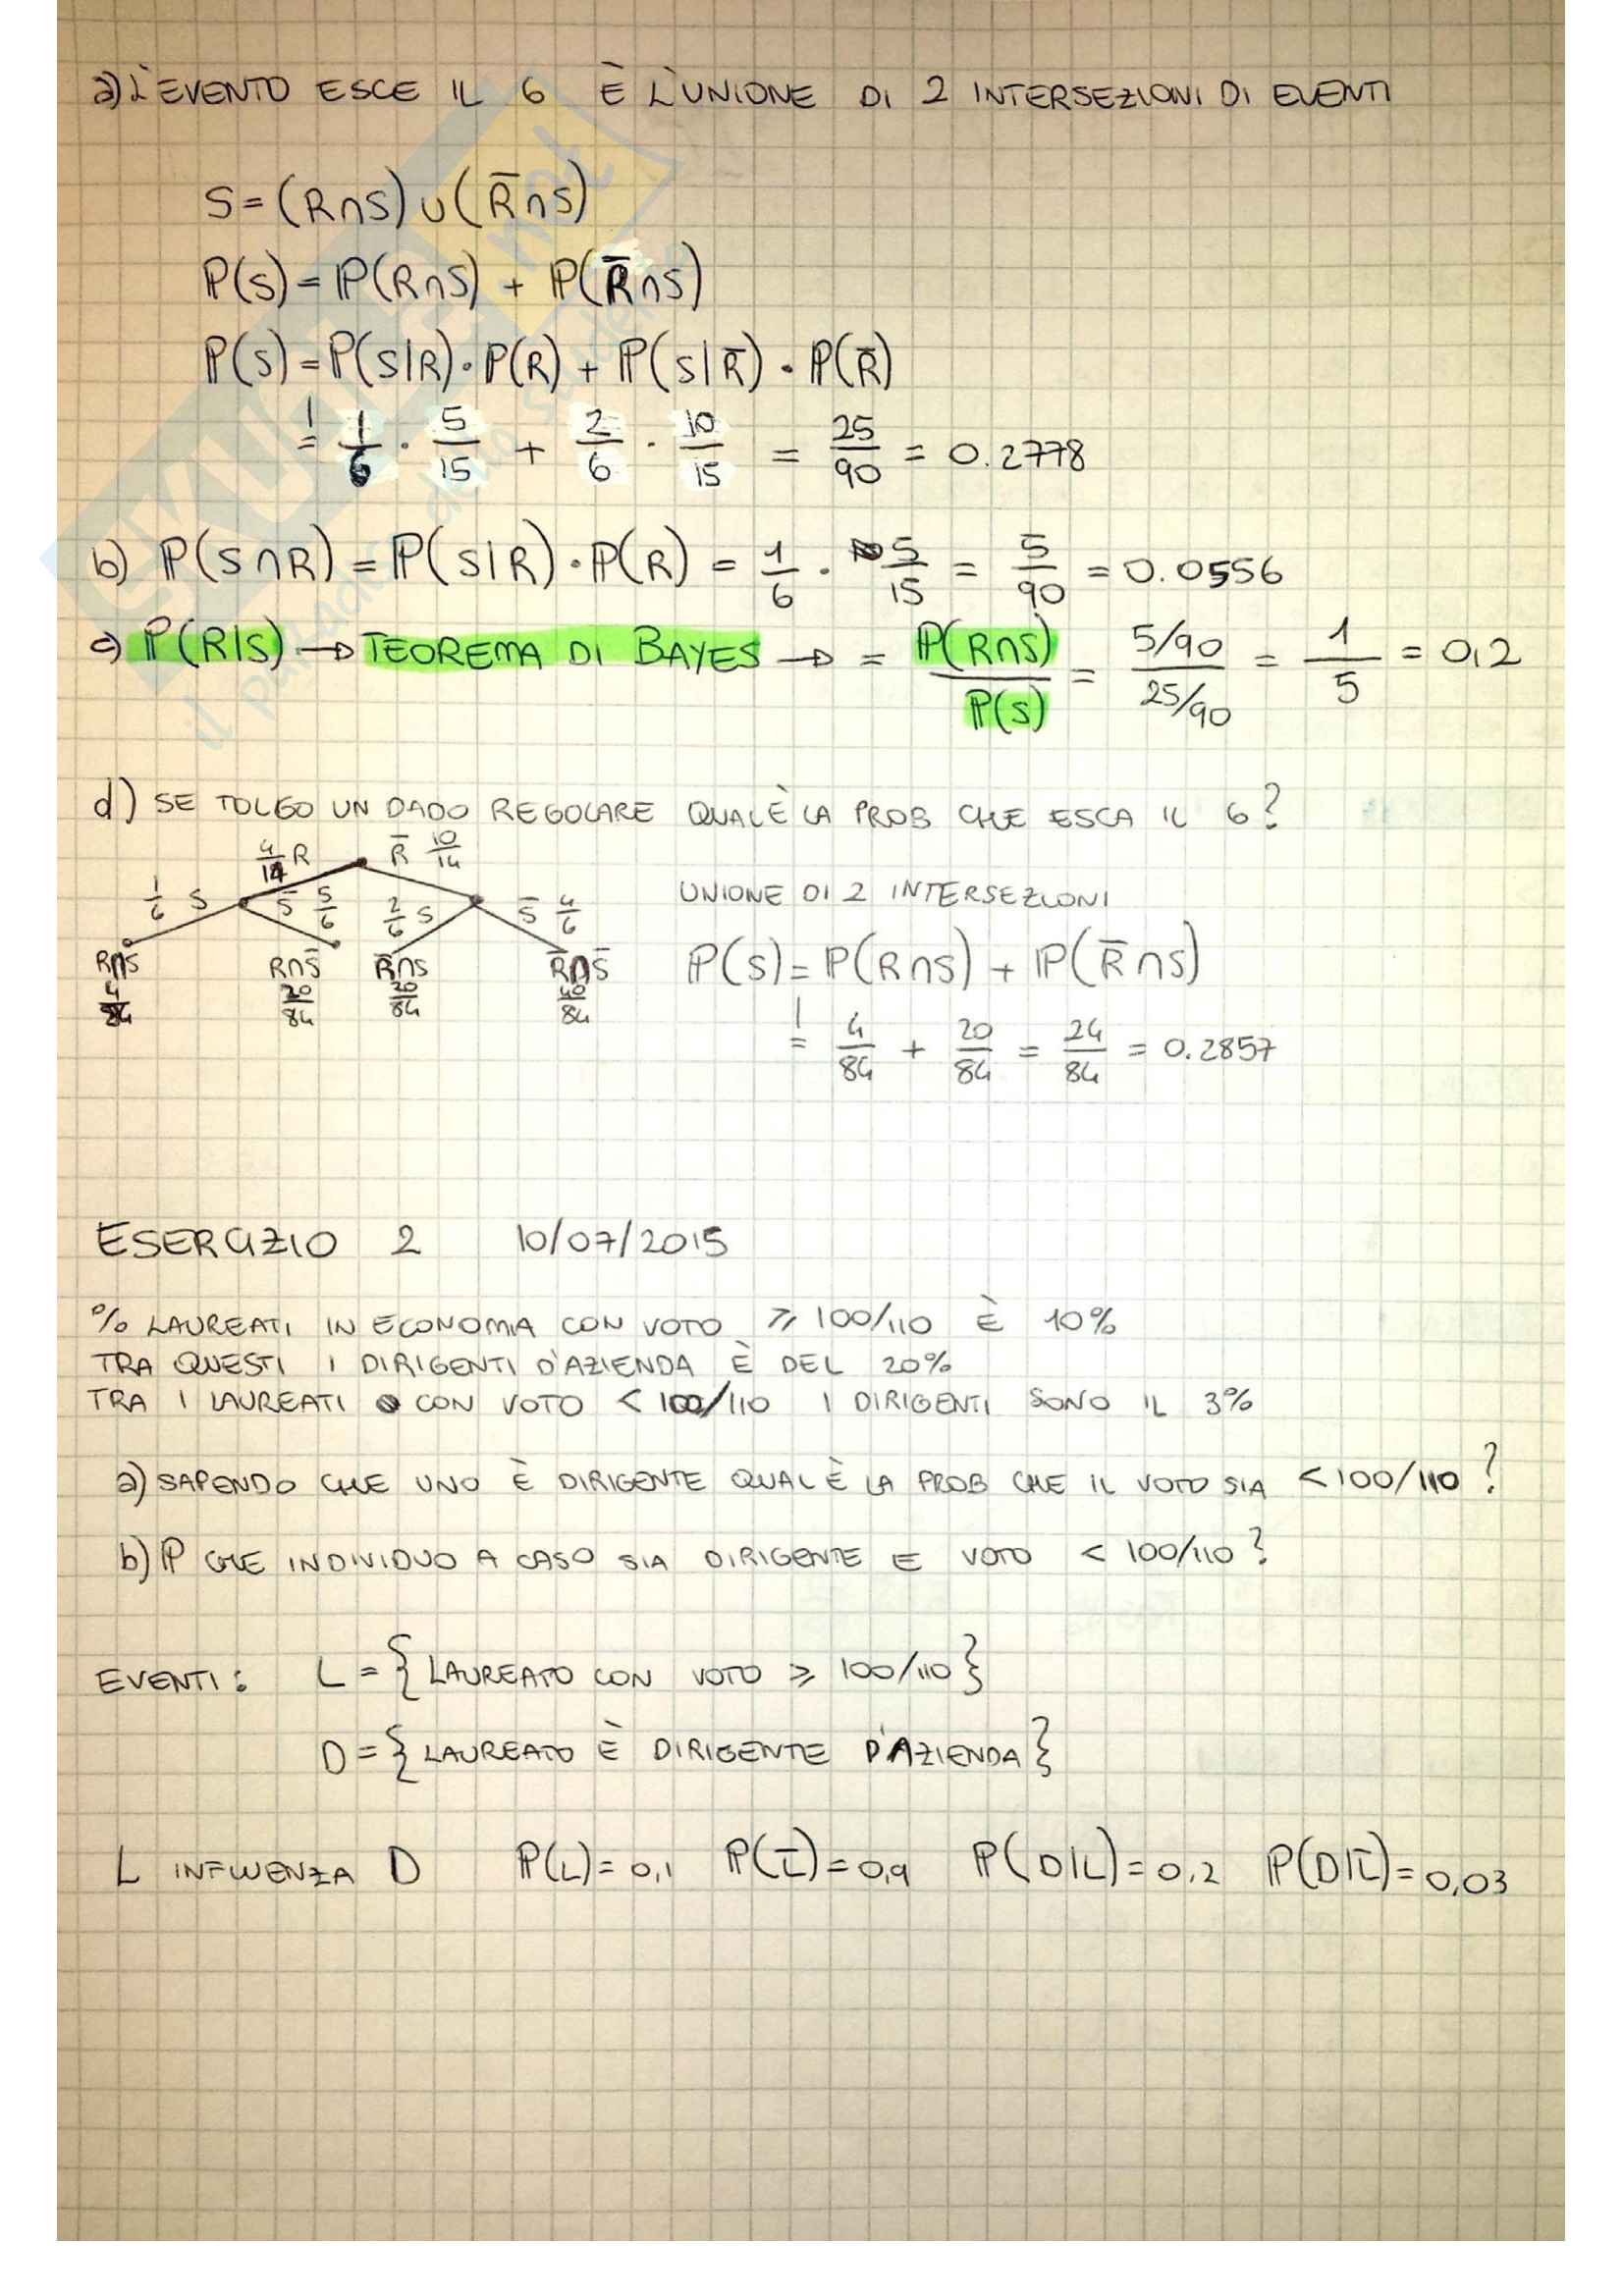 a) L'EVENTO ESCE IL 6 È L'UNIONE DI 2 INTERSEZIONI DI EVENTI
S = (R∩S) ∪ (R̅∩S)
P(S) = P(R∩S) + P(R̅∩S)
P(S) = P(S|R) · P(R) + P(S|R̅) · P(R̅)
= 1/6 · 5/15 + 2/6 · 10/15 = 25/90 = 0.2778
b) P(S∩R) = P(S|R) · P(R) = 1/6 · 5/15 = 5/90 = 0.0556
c) P(R|S) → TEOREMA DI BAYES → = P(R∩S)/P(S) = 5/90 / 25/90 = 1/5 = 0,2
d) SE TOLGO UN DADO REGOLARE QUAL È LA PROB CHE ESCA IL 6?
4/14 R R̅ 10/14
1/6 S S̅ 5/6 2/6 S S̅ 4/6
R∩S R∩S̅ R̅∩S R̅∩S̅
4/84 20/84 20/84 40/84
UNIONE DI 2 INTERSEZIONI
P(S) = P(R∩S) + P(R̅∩S)
= 4/84 + 20/84 = 24/84 = 0.2857
ESERCIZIO 2 10/07/2015
% LAUREATI IN ECONOMIA CON VOTO ≥ 100/110 È 10%
TRA QUESTI I DIRIGENTI D'AZIENDA È DEL 20%
TRA I LAUREATI CON VOTO < 100/110 I DIRIGENTI SONO IL 3%
a) SAPENDO CHE UNO È DIRIGENTE QUAL È LA PROB CHE IL VOTO SIA < 100/110?
b) P CHE INDIVIDUO A CASO SIA DIRIGENTE E VOTO < 100/110?
EVENTI: L = {LAUREATO CON VOTO ≥ 100/110}
D = {LAUREATO È DIRIGENTE D'AZIENDA}
L INFLUENZA D P(L) = 0,1 P(L̅) = 0,9 P(D|L) = 0,2 P(D|L̅) = 0,03